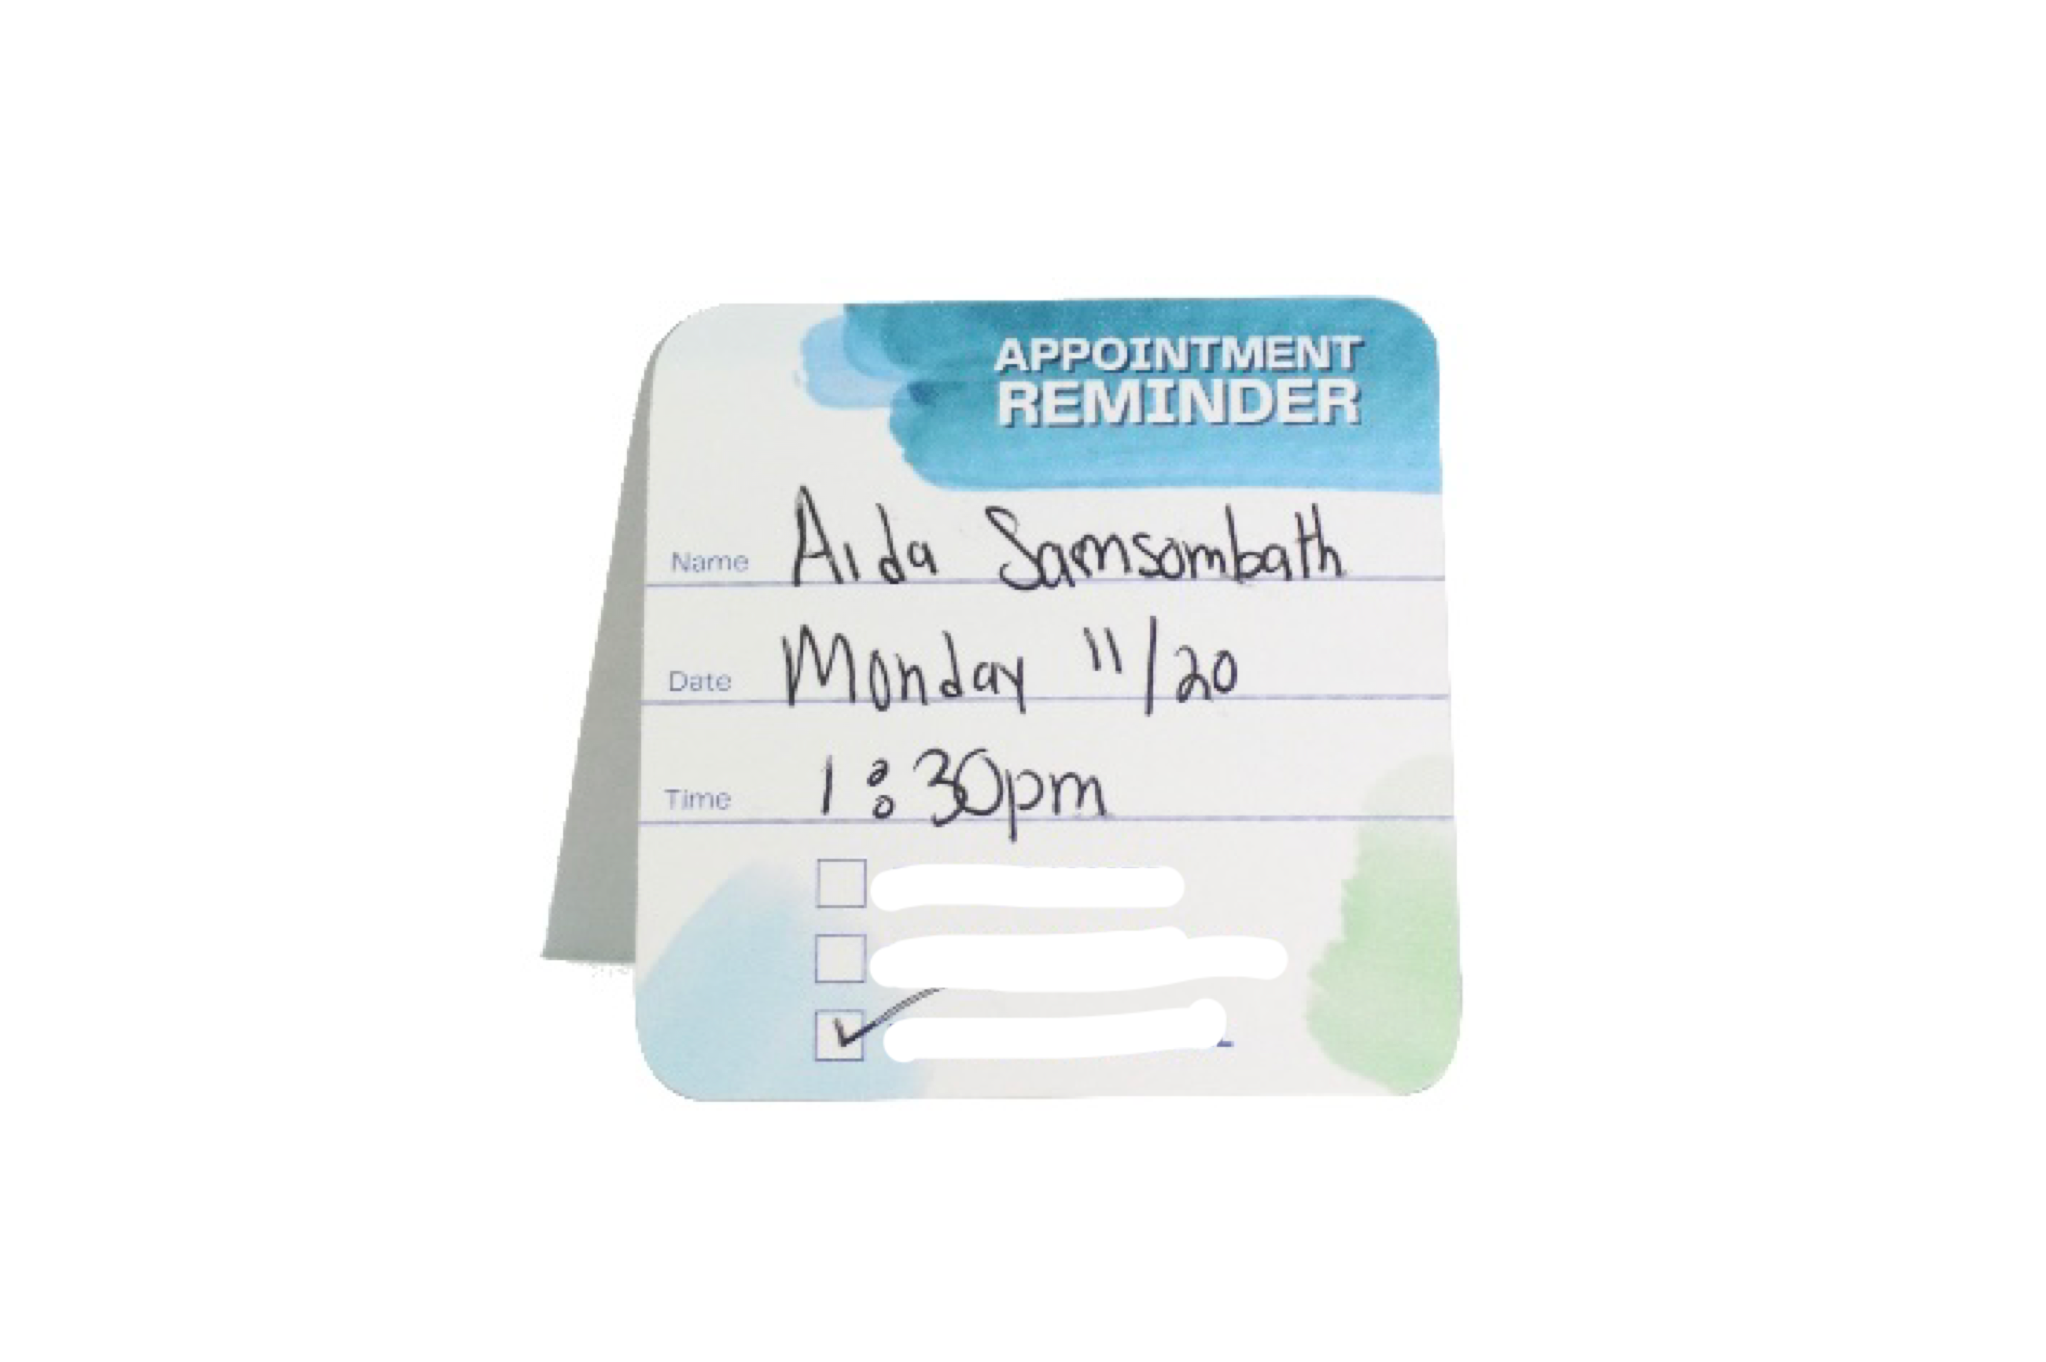 APPOINTMENT
REMINDER
Name Aida Samsombath
Date Monday 11/20
Time 1:30pm